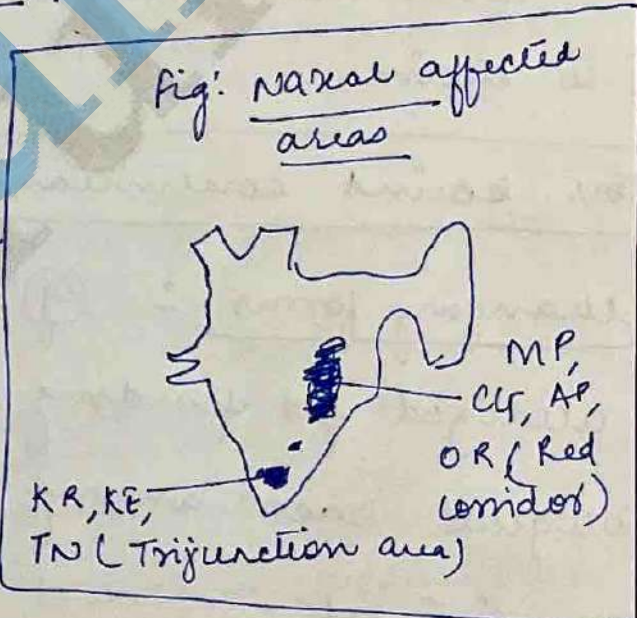 Fig: Naxal affected
areas
MP,
CG, AP,
OR (Red
corridor)
KR, KE,
TN (Trijunction area)